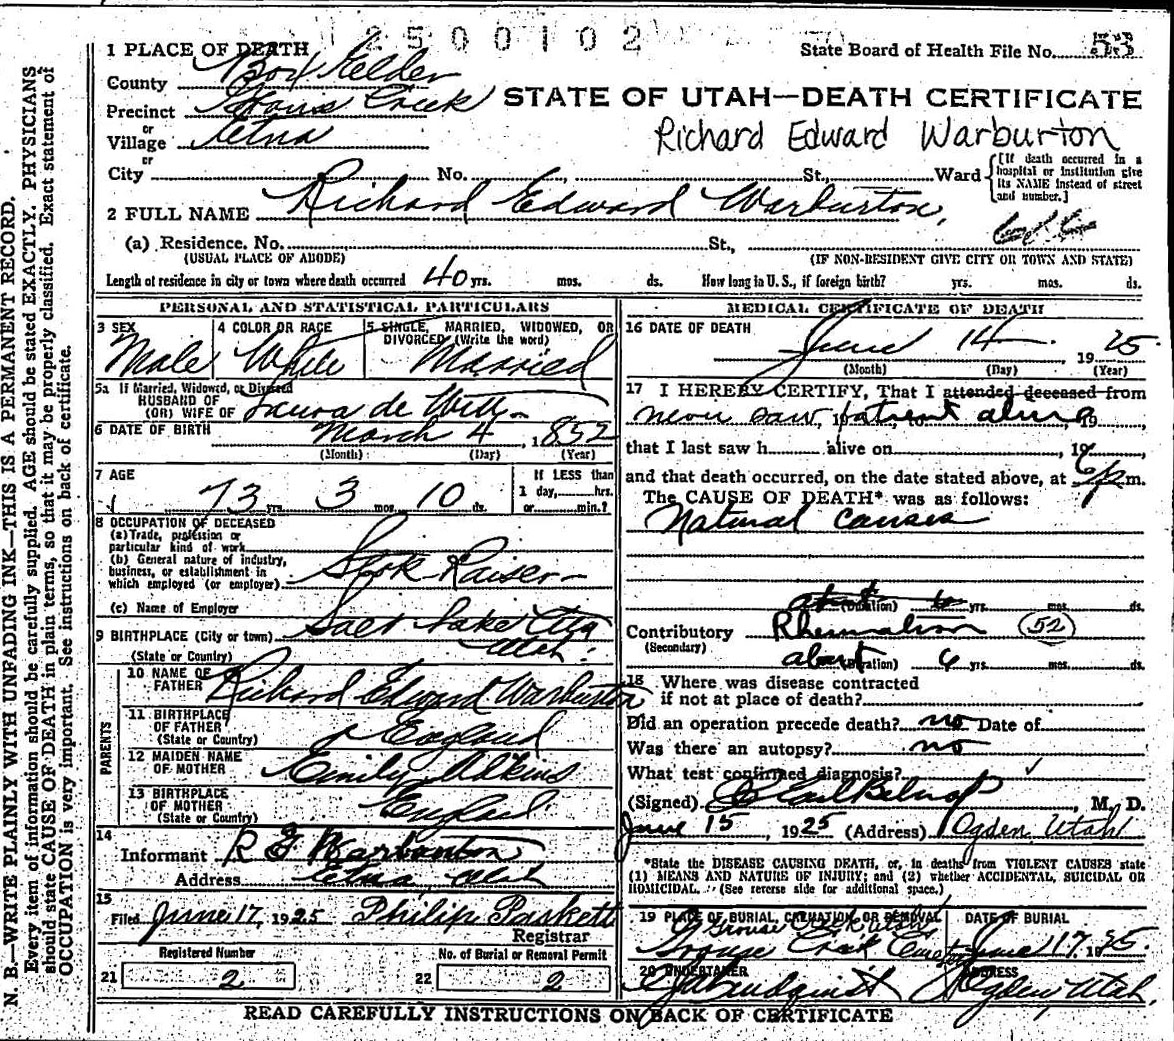 2500102
State Board of Health File No. 53
1 PLACE OF DEATH
County Box Elder
STATE OF UTAH—DEATH CERTIFICATE
Precinct Creek
or
Village Etna
Richard Edward Warburton
or
City No. St., Ward
[If death occurred in a hospital or institution give its NAME instead of street and number.]
2 FULL NAME Richard Edward Warburton,
(a) Residence. No. St.,
(USUAL PLACE OF ABODE) (IF NON-RESIDENT GIVE CITY OR TOWN AND STATE)
Length of residence in city or town where death occurred 40 yrs. mos. ds. How long in U. S., if foreign birth? yrs. mos. ds.
PERSONAL AND STATISTICAL PARTICULARS
3 SEX
Male
4 COLOR OR RACE
White
5 SINGLE, MARRIED, WIDOWED, OR
DIVORCED (Write the word)
Married
5a If Married, Widowed, or Divorced
HUSBAND OF
(OR) WIFE OF Laura de Witt
6 DATE OF BIRTH March 4, 1852
(Month) (Day) (Year)
7 AGE
73 yrs. 3 mos. 10 ds.
If LESS than
1 day, hrs.
or min.?
8 OCCUPATION OF DECEASED
(a) Trade, profession or
particular kind of work
(b) General nature of industry,
business, or establishment in
which employed (or employer) Stok Raiser
(c) Name of Employer
9 BIRTHPLACE (City or town) Salt Lake City
(State or Country) Utah.
PARENTS
10 NAME OF
FATHER Richard Edward Warburton
11 BIRTHPLACE
OF FATHER
(State or Country) England
12 MAIDEN NAME
OF MOTHER Emily Adkins
13 BIRTHPLACE
OF MOTHER
(State or Country) England
14
Informant R E Warburton
Address Etna, Utah
15
Filed June 17, 1925 Philip Paskett
Registrar
Registered Number
21 2
No. of Burial or Removal Permit
22 2
MEDICAL CERTIFICATE OF DEATH
16 DATE OF DEATH
June 14 1925
(Month) (Day) (Year)
17 I HEREBY CERTIFY, That I attended deceased from
never saw patient alive 19
that I last saw h alive on , 19
and that death occurred, on the date stated above, at 6 p m.
The CAUSE OF DEATH* was as follows:
Natural causes
about (Duration) 6 yrs. mos. ds.
Contributory Rhumatism 52
(Secondary)
about (Duration) 6 yrs. mos. ds.
18 Where was disease contracted
if not at place of death?
Did an operation precede death? no Date of
Was there an autopsy? no
What test confirmed diagnosis?
(Signed) , M. D.
June 15, 1925 (Address) Ogden, Utah
*State the DISEASE CAUSING DEATH, or, in deaths from VIOLENT CAUSES state
(1) MEANS AND NATURE OF INJURY; and (2) whether ACCIDENTAL, SUICIDAL OR
HOMICIDAL. (See reverse side for additional space.)
19 PLACE OF BURIAL, CREMATION, OR REMOVAL
Grouse Creek Utah
Grouse Creek
DATE OF BURIAL
June 17 1925.
20 UNDERTAKER
Lindquist
ADDRESS
Ogden, Utah.
READ CAREFULLY INSTRUCTIONS ON BACK OF CERTIFICATE
N. B.—WRITE PLAINLY WITH UNFADING INK—THIS IS A PERMANENT RECORD.
Every item of information should be carefully supplied. AGE should be stated EXACTLY. PHYSICIANS
should state CAUSE OF DEATH in plain terms, so that it may be properly classified. Exact statement of
OCCUPATION is very important. See instructions on back of certificate.